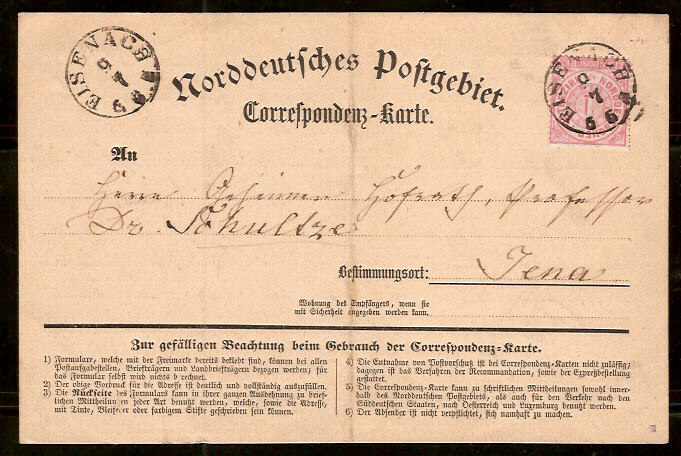 EISENACH
9
7
5 6
Norddeutsches Postgebiet.
Correspondenz-Karte.
EISENACH
9
7
5 6
An
Herrn Geheimen Hofrath, Professor
Dr. Schultze
Bestimmungsort: Jena
Wohnung des Empfängers, wenn sie
mit Sicherheit angegeben werden kann.
Zur gefälligen Beachtung beim Gebrauch der Correspondenz-Karte.
1) Formulare, welche mit der Freimarke bereits beklebt sind, können bei allen
Postaufgabestellen, Briefträgern und Landbriefträgern bezogen werden; für
das Formular selbst wird nichts berechnet.
2) Der obige Vordruck für die Adresse ist deutlich und vollständig auszufüllen.
3) Die Rückseite des Formulars kann in ihrer ganzen Ausdehnung zu brief-
lichen Mittheilungen jeder Art benutzt werden, welche, sowie die Adresse,
mit Dinte, Bleifeder oder farbigem Stifte geschrieben sein können.
4) Die Entnahme von Postvorschuß ist bei Correspondenz-Karten nicht zulässig;
dagegen ist das Verfahren der Recommandation, sowie der Expreßbestellung
gestattet.
5) Die Correspondenz-Karte kann zu schriftlichen Mittheilungen sowohl inner-
halb des Norddeutschen Postgebiets, als auch für den Verkehr nach den
Süddeutschen Staaten, nach Oesterreich und Luxemburg benutzt werden.
6) Der Absender ist nicht verpflichtet, sich namhaft zu machen.